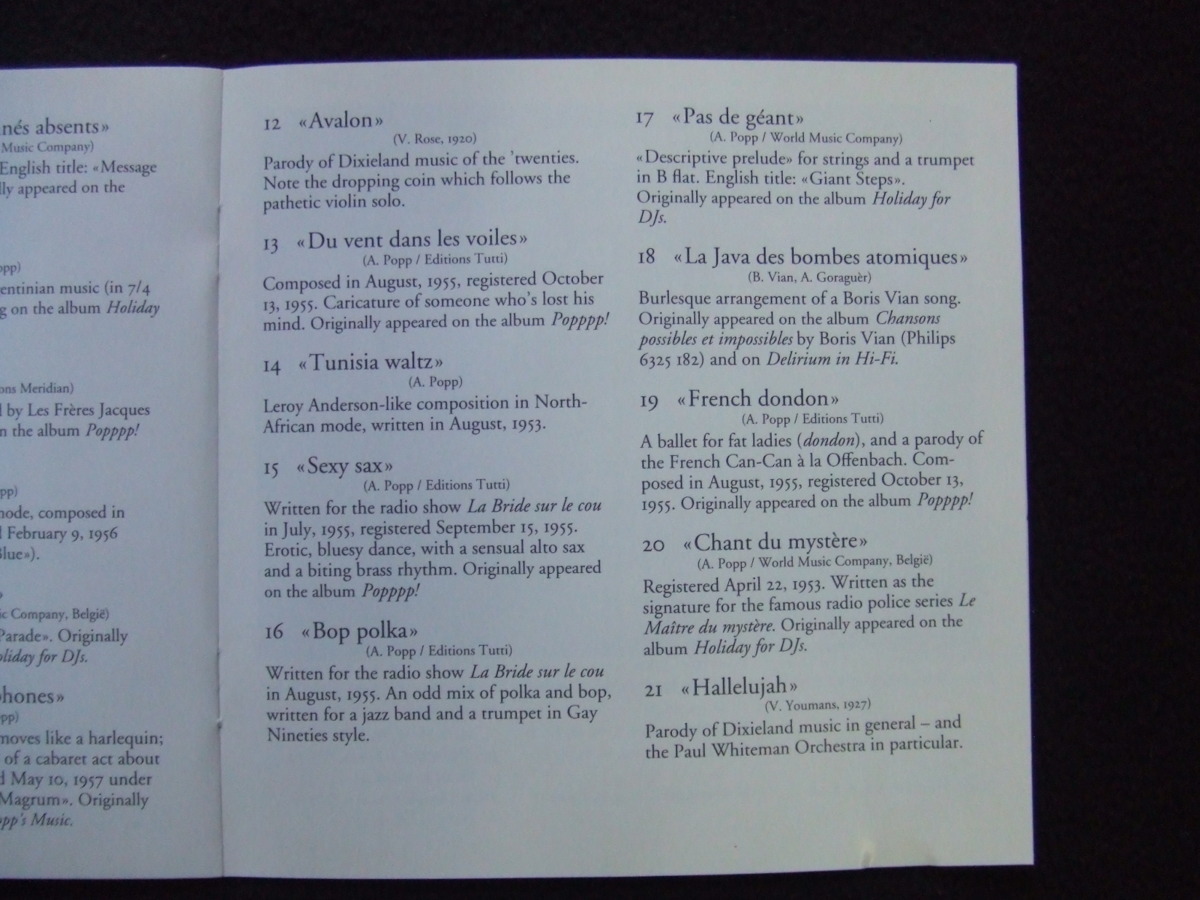 nés absents»
Music Company)
English title: «Message
lly appeared on the
opp)
entinian music (in 7/4
g on the album Holiday
ons Meridian)
l by Les Frères Jacques
n the album Popppp!
opp)
mode, composed in
l February 9, 1956
Blue»).
»
ic Company, België)
Parade». Originally
oliday for DJs.
phones»
pp)
moves like a harlequin;
of a cabaret act about
d May 10, 1957 under
Magrum». Originally
opp's Music.
12 «Avalon»
(V. Rose, 1920)
Parody of Dixieland music of the 'twenties.
Note the dropping coin which follows the
pathetic violin solo.
13 «Du vent dans les voiles»
(A. Popp / Editions Tutti)
Composed in August, 1955, registered October
13, 1955. Caricature of someone who's lost his
mind. Originally appeared on the album Popppp!
14 «Tunisia waltz»
(A. Popp)
Leroy Anderson-like composition in North-
African mode, written in August, 1953.
15 «Sexy sax»
(A. Popp / Editions Tutti)
Written for the radio show La Bride sur le cou
in July, 1955, registered September 15, 1955.
Erotic, bluesy dance, with a sensual alto sax
and a biting brass rhythm. Originally appeared
on the album Popppp!
16 «Bop polka»
(A. Popp / Editions Tutti)
Written for the radio show La Bride sur le cou
in August, 1955. An odd mix of polka and bop,
written for a jazz band and a trumpet in Gay
Nineties style.
17 «Pas de géant»
(A. Popp / World Music Company)
«Descriptive prelude» for strings and a trumpet
in B flat. English title: «Giant Steps».
Originally appeared on the album Holiday for
DJs.
18 «La Java des bombes atomiques»
(B. Vian, A. Goraguèr)
Burlesque arrangement of a Boris Vian song.
Originally appeared on the album Chansons
possibles et impossibles by Boris Vian (Philips
6325 182) and on Delirium in Hi-Fi.
19 «French dondon»
(A. Popp / Editions Tutti)
A ballet for fat ladies (dondon), and a parody of
the French Can-Can à la Offenbach. Com-
posed in August, 1955, registered October 13,
1955. Originally appeared on the album Popppp!
20 «Chant du mystère»
(A. Popp / World Music Company, België)
Registered April 22, 1953. Written as the
signature for the famous radio police series Le
Maître du mystère. Originally appeared on the
album Holiday for DJs.
21 «Hallelujah»
(V. Youmans, 1927)
Parody of Dixieland music in general – and
the Paul Whiteman Orchestra in particular.